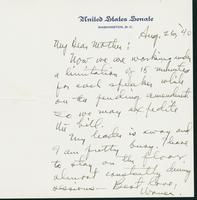 United States Senate
WASHINGTON, D.C.
Aug. 26, '40
My Dear Mother:
Now we are working under
a limitation of 15 minutes
for each speaker while
on the pending amendment
so we may expedite
the bill.
My leader is away and
I am pretty busy. I have
to stay on the floor
almost constantly during
sessions — Best love,
Warren